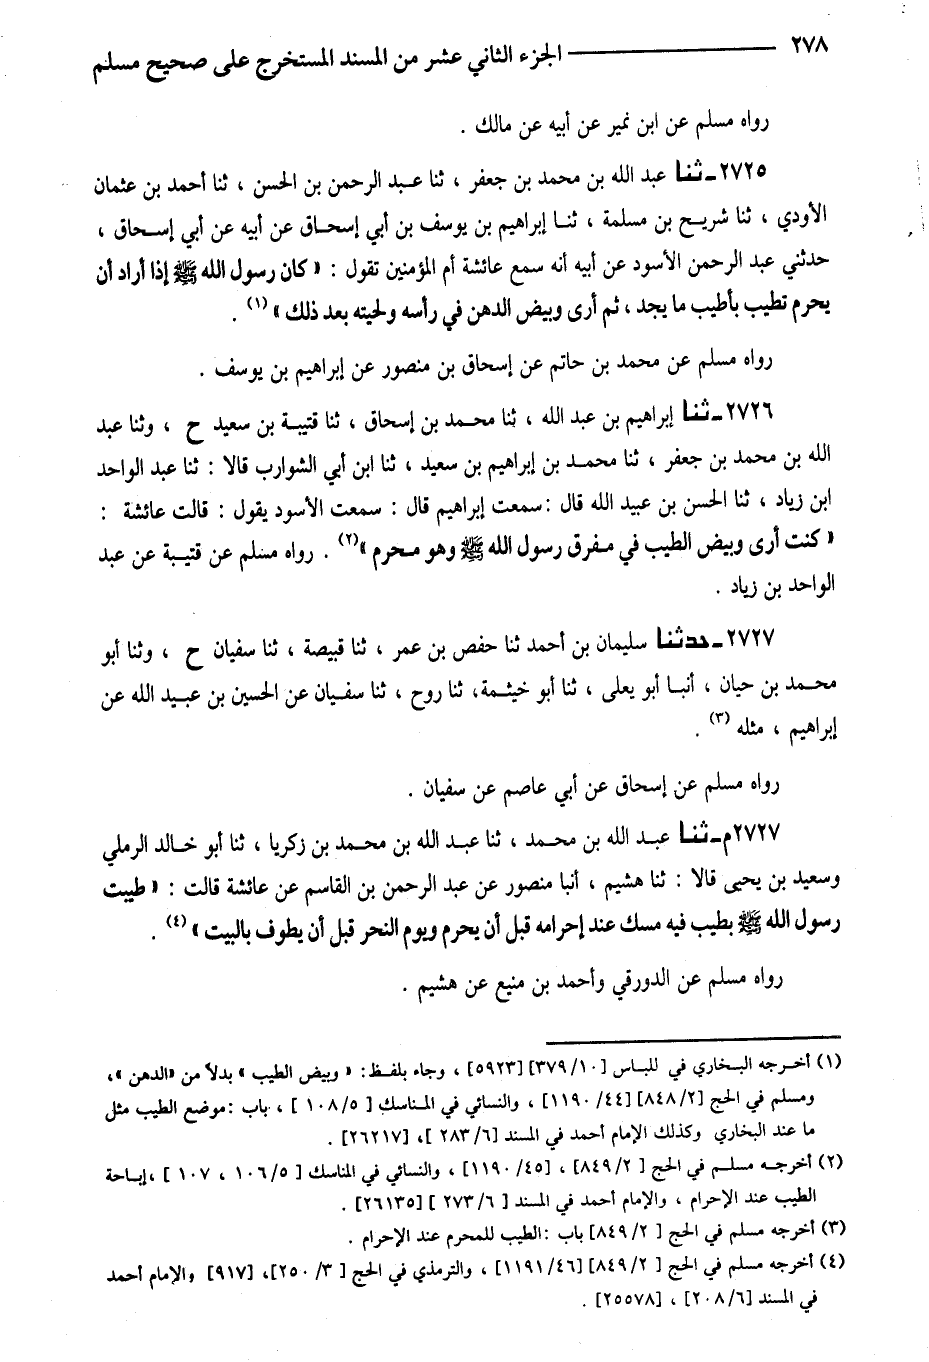 ٢٧٨ الجزء الثاني عشر من المسند المستخرج على صحيح مسلم
رواه مسلم عن ابن نمير عن أبيه عن مالك .
٢٧٢٥ـ ثنا عبد الله بن محمد بن جعفر ، ثنا عبد الرحمن بن الحسن ، ثنا أحمد بن عثمان
الأودي ، ثنا شريح بن مسلمة ، ثنا إبراهيم بن يوسف بن أبي إسحاق عن أبيه عن أبي إسحاق ،
حدثني عبد الرحمن الأسود عن أبيه أنه سمع عائشة أم المؤمنين تقول : « كان رسول الله ﷺ إذا أراد أن
يحرم تطيب بأطيب ما يجد ، ثم أرى وبيض الدهن في رأسه ولحيته بعد ذلك » (١) .
رواه مسلم عن محمد بن حاتم عن إسحاق بن منصور عن إبراهيم بن يوسف .
٢٧٢٦ـ ثنا إبراهيم بن عبد الله ، ثنا محمد بن إسحاق ، ثنا قتيبة بن سعيد ح ، وثنا عبد
الله بن محمد بن جعفر ، ثنا محمد بن إبراهيم بن سعيد ، ثنا ابن أبي الشوارب قالا : ثنا عبد الواحد
ابن زياد ، ثنا الحسن بن عبيد الله قال :سمعت إبراهيم قال : سمعت الأسود يقول : قالت عائشة :
« كنت أرى وبيض الطيب في مفرق رسول الله ﷺ وهو محرم »(٢) . رواه مسلم عن قتيبة عن عبد
الواحد بن زياد .
٢٧٢٧ـ حدثنا سليمان بن أحمد ثنا حفص بن عمر ، ثنا قبيصة ، ثنا سفيان ح ، وثنا أبو
محمد بن حيان ، أنبا أبو يعلى ، ثنا أبو خيثمة، ثنا روح ، ثنا سفيان عن الحسين بن عبيد الله عن
إبراهيم ، مثله (٣) .
رواه مسلم عن إسحاق عن أبي عاصم عن سفيان .
٢٧٢٧م-ثنا عبد الله بن محمد ، ثنا عبد الله بن محمد بن زكريا ، ثنا أبو خالد الرملي
وسعيد بن يحيى قالا : ثنا هشيم ، أنبا منصور عن عبد الرحمن بن القاسم عن عائشة قالت : « طيبت
رسول الله ﷺ بطيب فيه مسك عند إحرامه قبل أن يحرم ويوم النحر قبل أن يطوف بالبيت » (٤) .
رواه مسلم عن الدورقي وأحمد بن منيع عن هشيم .
(١) أخرجه البخاري في للباس [٣٧٩/١٠] [٥٩٢٣] ، وجاء بلفظ: « وبيض الطيب » بدلاً من «الدهن »،
ومسلم في الحج [٨٤٨/٢] [١١٩٠/٤٤] ، والنسائي في المناسك [ ١٠٨/٥ ] ، باب :موضع الطيب مثل
ما عند البخاري وكذلك الإمام أحمد في المسند [٢٨٣/٦ ]، [٢٦٢١٧] .
(٢) أخرجه مسلم في الحج [ ٨٤٩/٢] ، [١١٩٠/٤٥] ، والنسائي في المناسك [ ١٠٦/٥ ، ١٠٧ ] ،إباحة
الطيب عند الإحرام ، والإمام أحمد في المسند [ ٢٧٣/٦ ] [٢٦١٣٥] .
(٣) أخرجه مسلم في الحج [ ٨٤٩/٢] باب :الطيب للمحرم عند الإحرام .
(٤) أخرجه مسلم في الحج [ ٨٤٩/٢] [١١٩١/٤٦] ، والترمذي في الحج [ ٢٥٠/٣]، [٩١٧] والإمام أحمد
في المسند [٢٠٨/٦] ، [٢٥٥٧٨] .